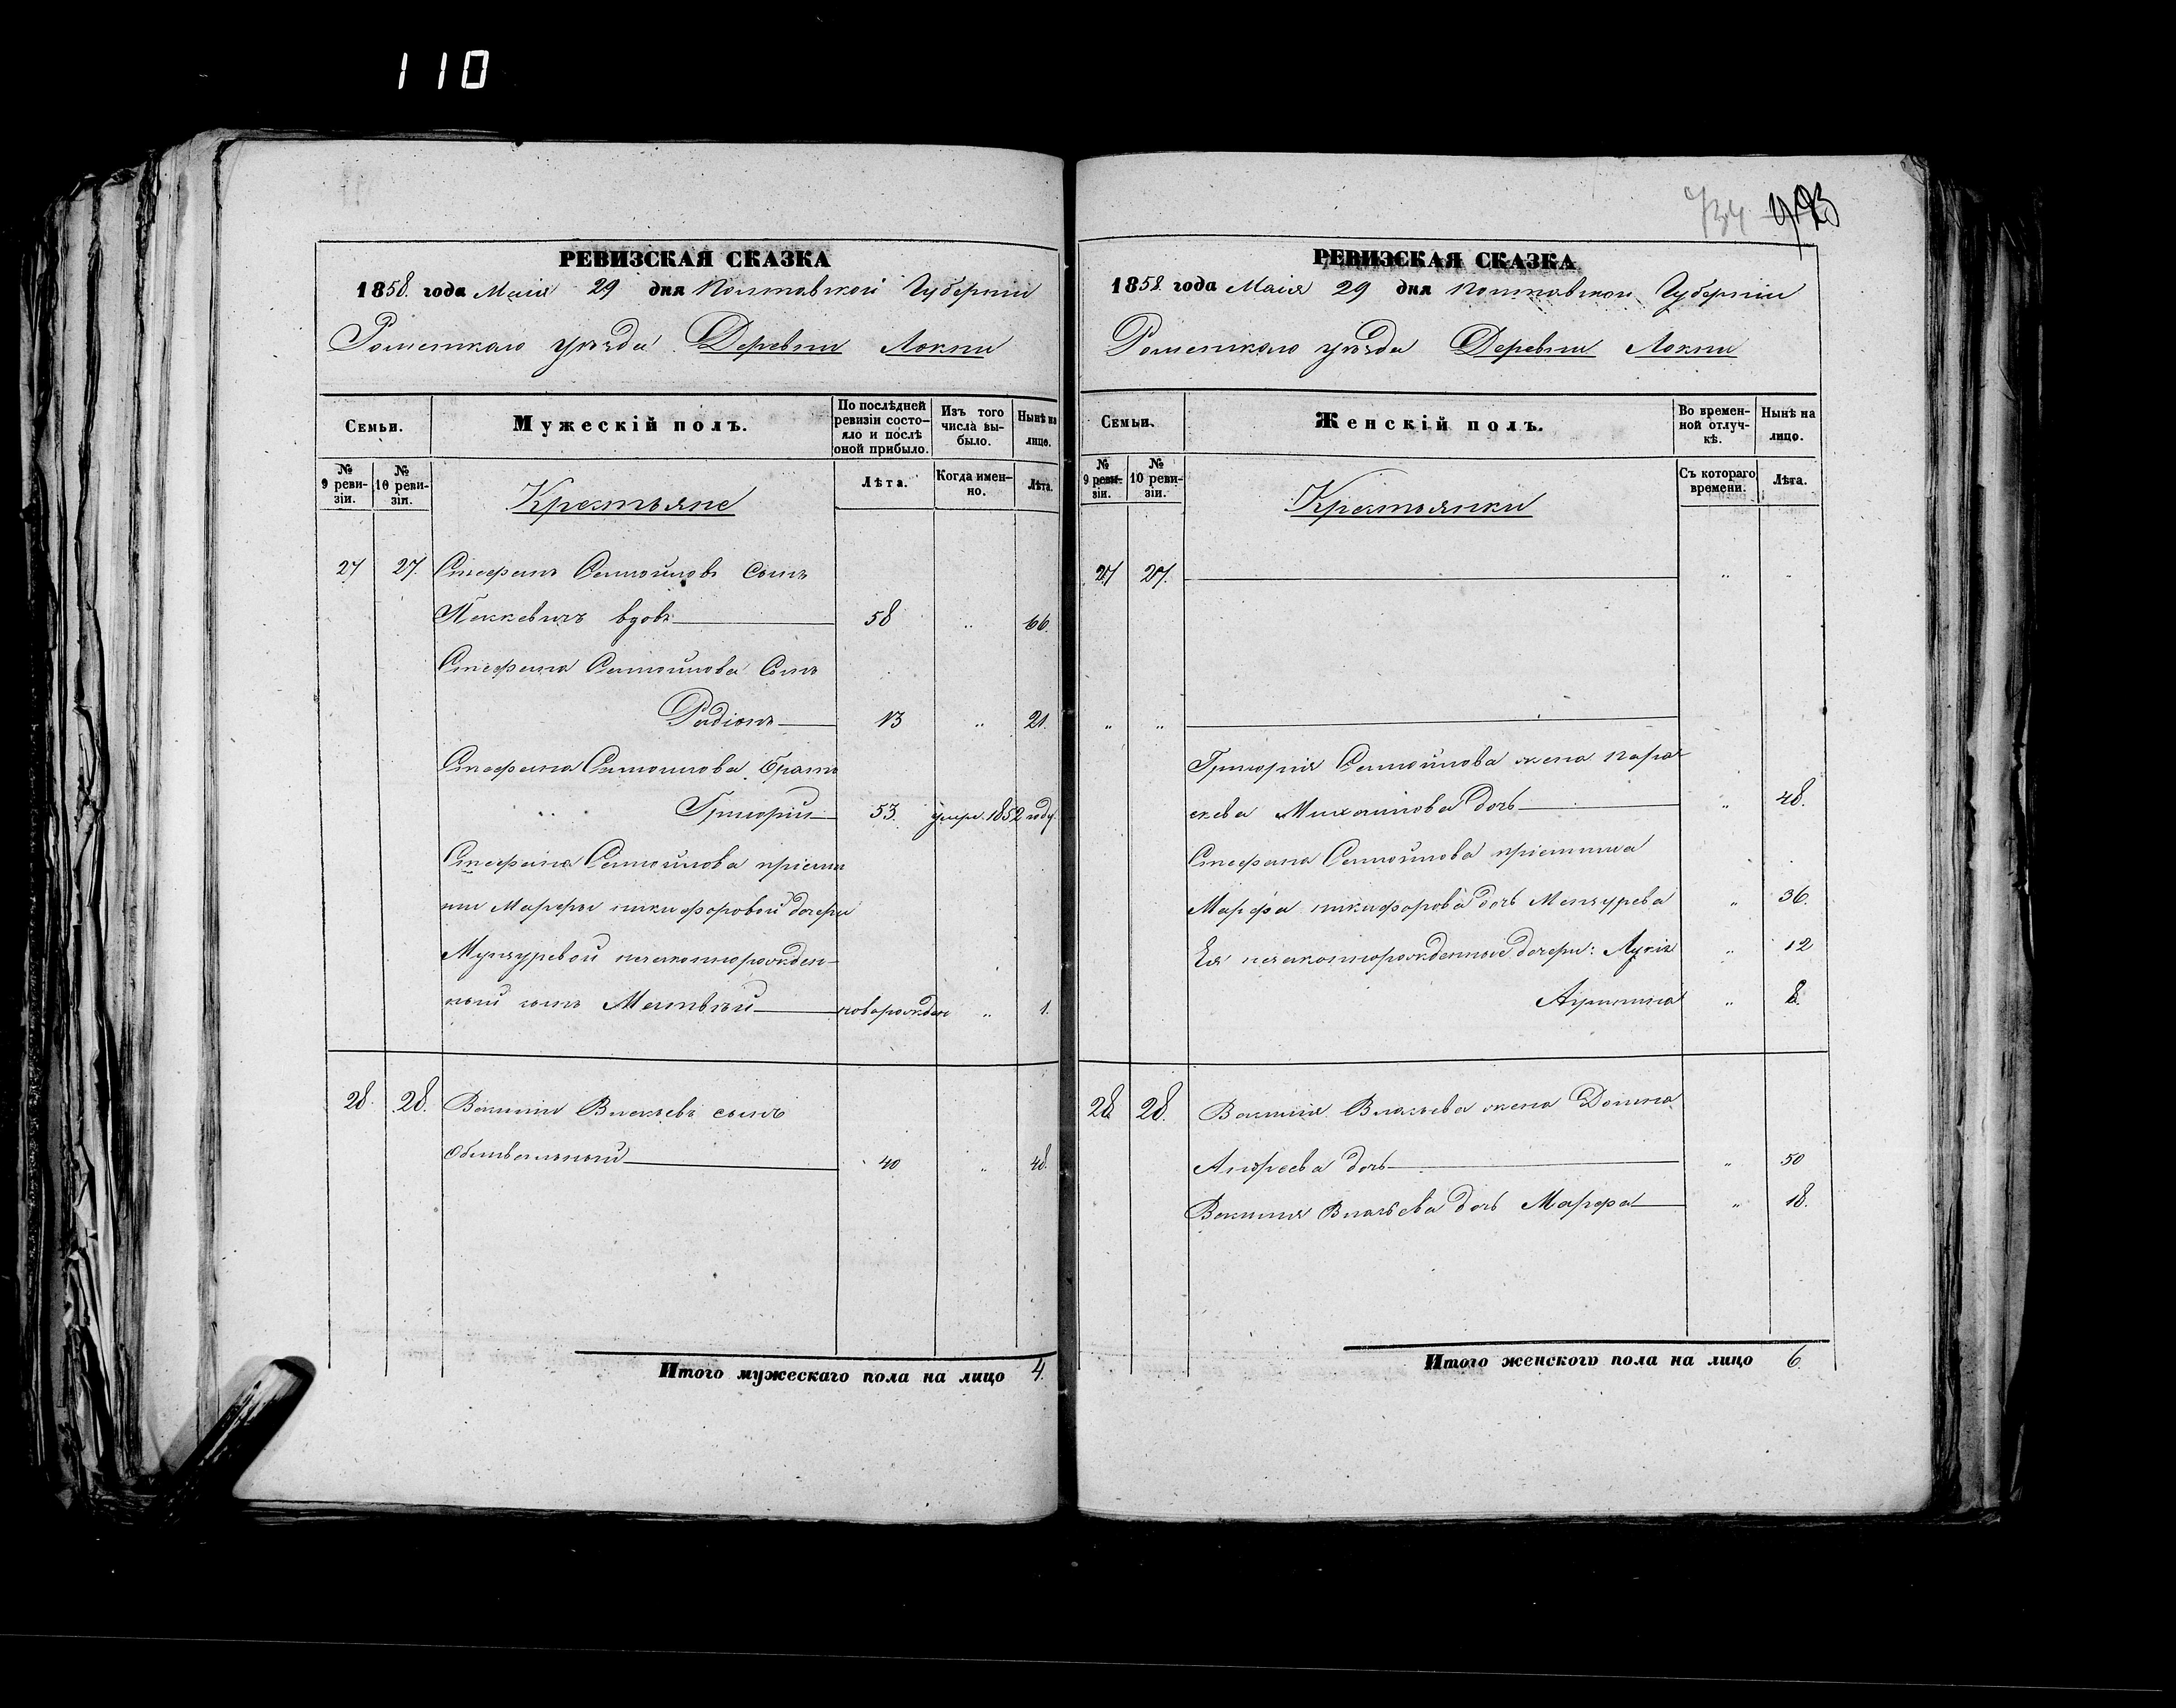 110
734
РЕВИЗСКАЯ СКАЗКА
1858. года Маія 29 дня Полтавской Губерніи
Роменскаго уѣзда Деревни Локни
Семьи.
Мужескій полъ.
По послѣдней ревизіи состояло и послѣ оной прибыло.
Изъ того числа выбыло.
Нынѣ на лицо.
№ 9 ревизіи.
№ 10 ревизіи.
Крестьяне
Лѣта.
Когда именно.
Лѣта.
27 27. Стефанъ Самойловъ сынъ
вдовъ 58 „ 66.
Стефана Самойлова сынъ
Радіонъ 13 „ 21.
Стефана Самойлова братъ
Григорій 53. умре. 1852 году.
Стефана Самойлова пріемы
ши Марфы никифоровой дочери
незаконнорожден-
ный сынъ Матвѣй новорожден „ 1.
28. 28. Власьевъ сынъ
40 „ 48.
Итого мужескаго пола на лицо 4.
РЕВИЗСКАЯ СКАЗКА
1858 года Маія 29 дня Полтавской Губерніи
Роменскаго уѣзда Деревни Локни
Семьи.
Женскій полъ.
Во временной отлучкѣ.
Нынѣ на лицо.
№ 9 ревизіи.
№ 10 ревизіи.
Крестьянки
Съ котораго времени.
Лѣта.
27 27. „ „
„ „
Григорія Самойлова жена Пара
скева Михайлова дочь „ 48.
Стефана Самойлова пріемыша
Марфа никифорова дочь „ 36.
Ея незаконнорожденные дочери: Лукія „ 12
„ 8.
28 28. Власьева жена Домна
Андреева дочь „ 50
Власьева дочь Марфа „ 18.
Итого женского пола на лицо 6.